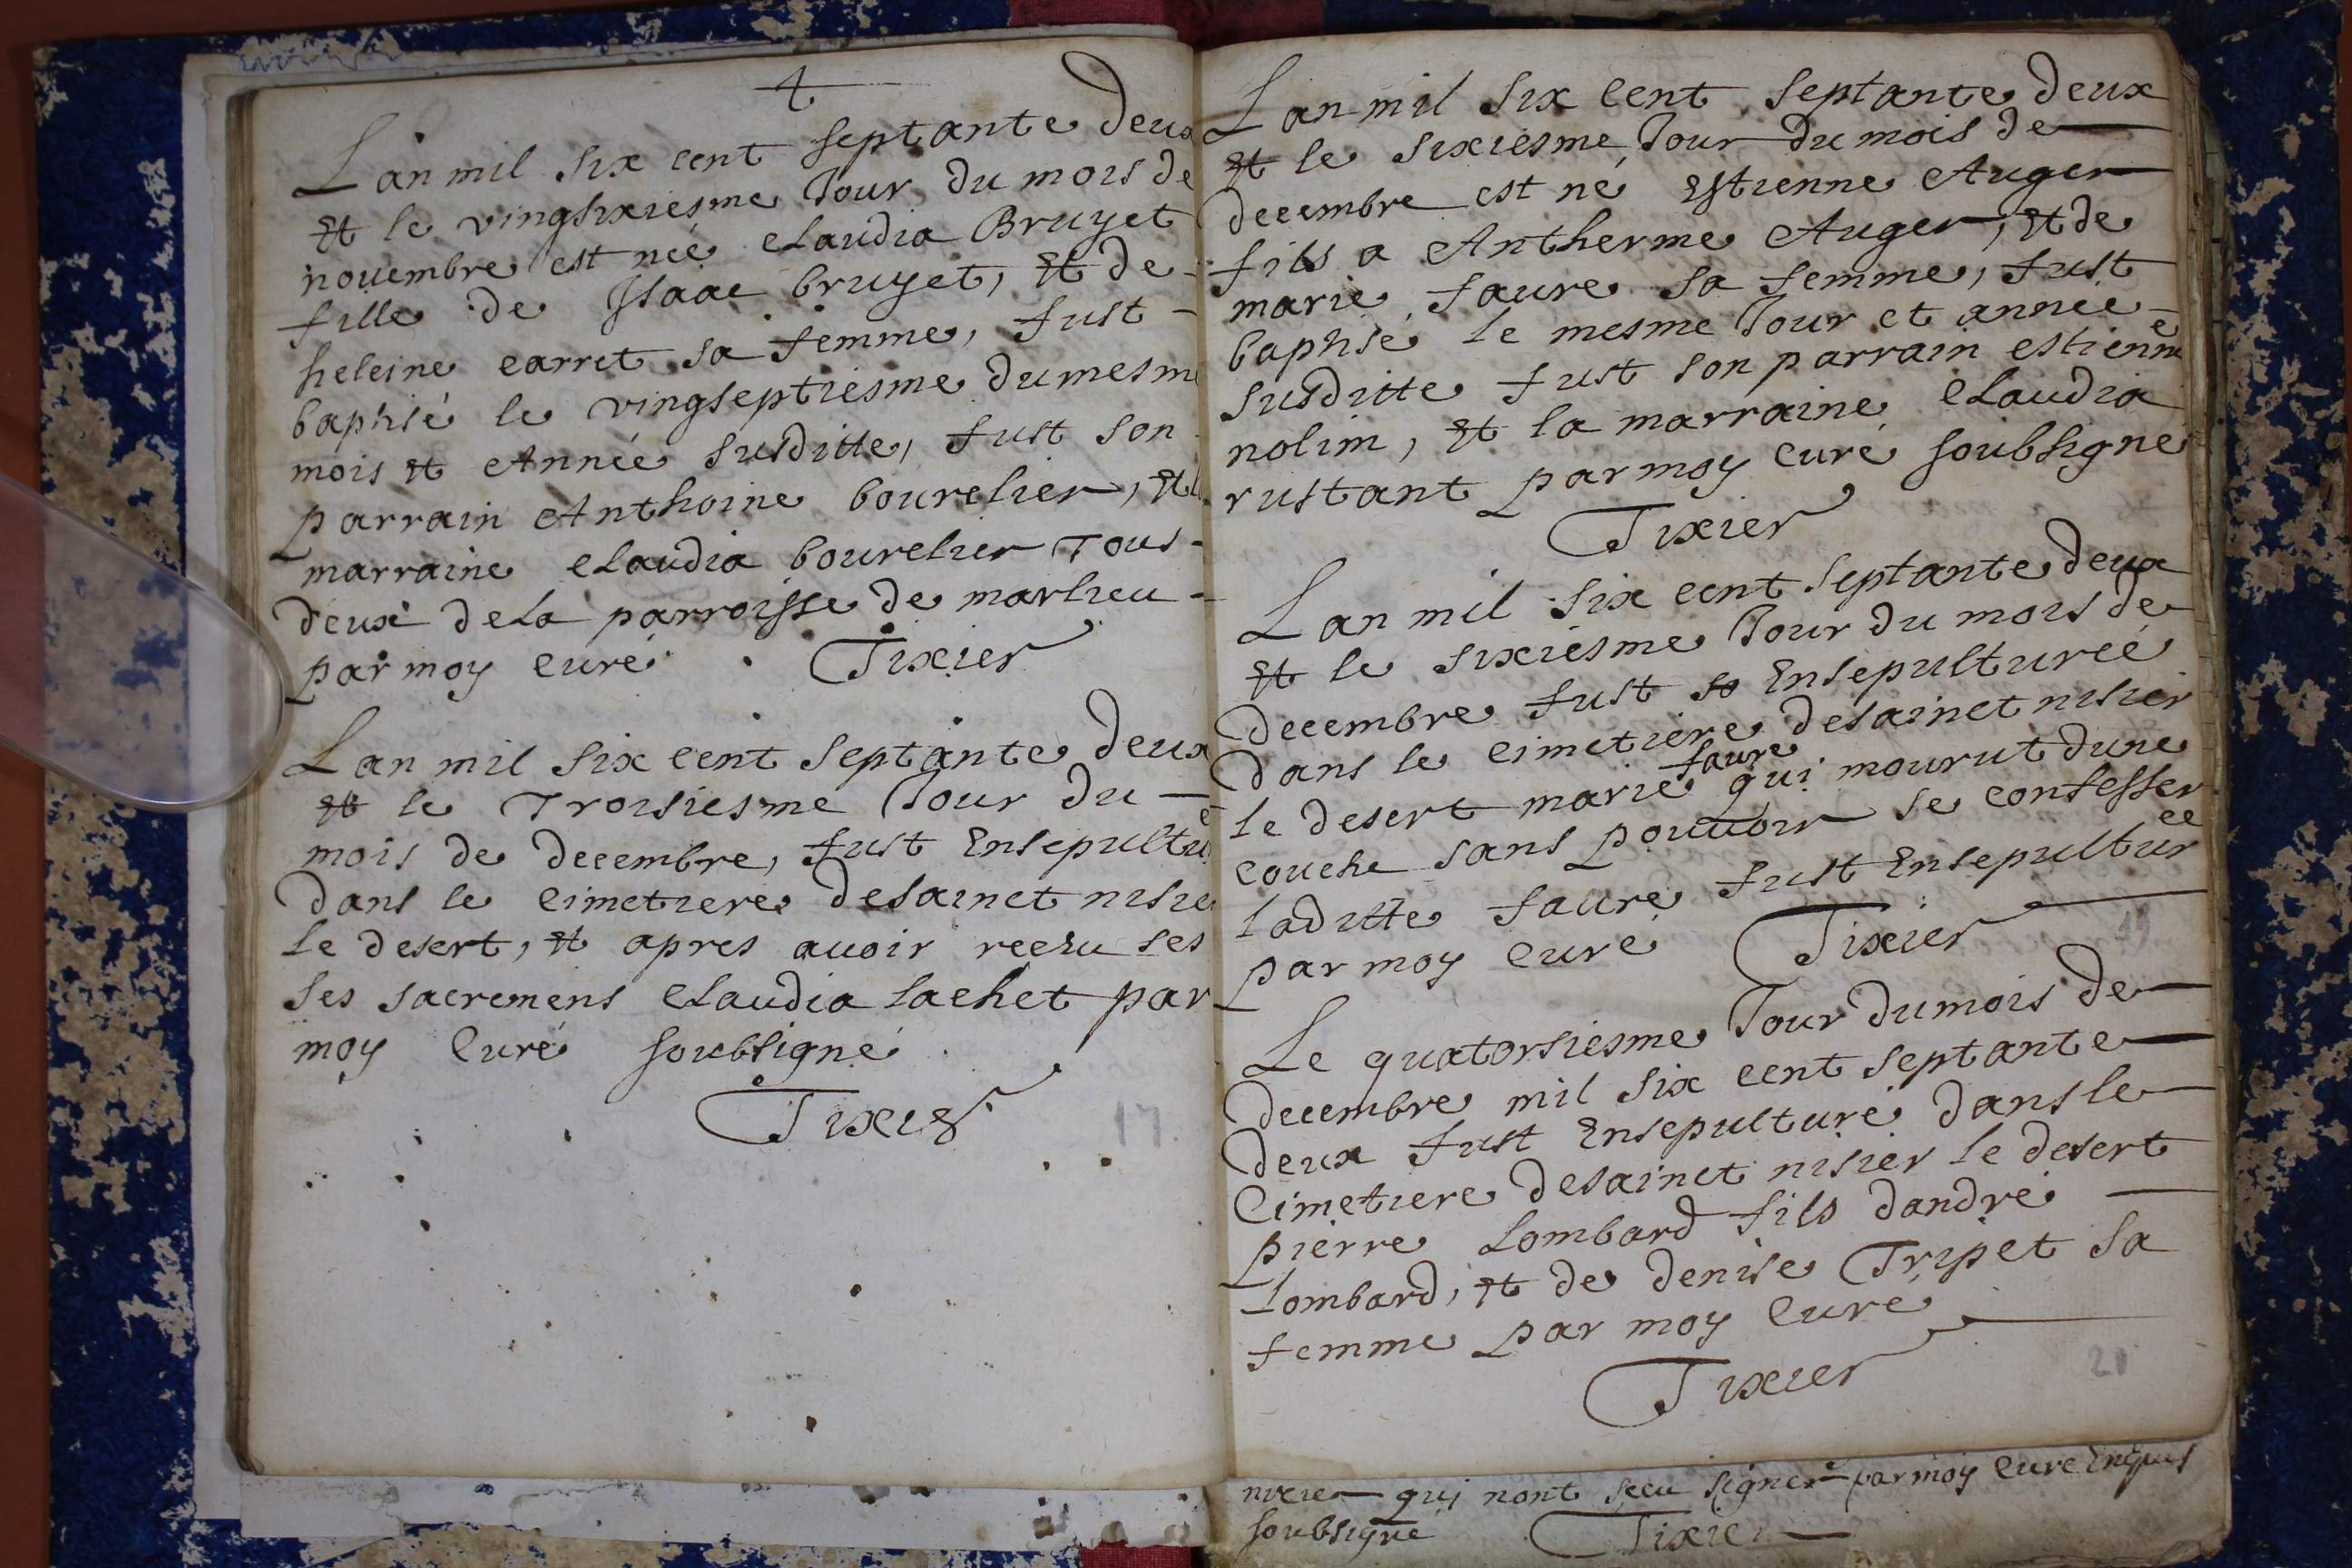 4
Lan mil six cent septante deux
Et le vingsixiesme Jour du mois de
nouembre est née Claudia Bruyet
fille de Jsaac bruyet, Et de -
heleine carret sa femme, fust -
baptisé le vingseptiesme du mesme
mois Et Année susditte, fust son
parrain Anthoine bourelier, Et l
marraine Claudia bourelier Tous -
deux dela parroisse de marlieu -
par moy Curé Tixier
Lan mil six cent septante deux
Et le Troisiesme Jour du —
mois de decembre, fust Ensepultué
dans le Cimetiere desainct nisie
le desert, Et apres auoir reczu ses
ses sacremens Claudia lachet par
moy Curé soubsigné
Tixier
17.
Lan mil six Cent septante deux
Et le sixiesme Jour du mois de —
decembre est né Estienne Auger
fils a Antherme Auger, Et de
marie faure sa femme, fust
baptisé le mesme Jour et année -
susditte fust son parrain estienne
nolim, Et la marraine Claudia
rustant par moy Curé soubsigné
Tixier
Lan mil six cent septante deux
Et le sixiesme Jour du mois de
decembre fust so Ensepulturée
dans le cimetiere desainct nisier
le desert marie faure qui mourut dune
couche sans pouuoir se confesser
laditte faure fust Ensepulturée
par moy Curé Tixier
19
Le quatorsiesme Jour dumois de —
decembre mil six cent septante —
deux fust Ensepulturé dans le —
Cimetiere desainct nisier le desert
pierre Lombard fils dandré —
lombard, Et de denise Tripet sa
femme par moy Curé
Tixier
20
qui nont sceu signer par moy Curé
soubsigné Tixier